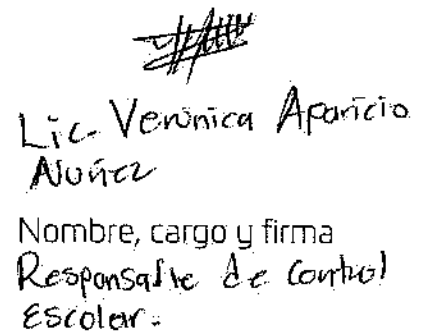 Lic. Verónica Aparicio
Nuñez
Nombre, cargo y firma
Responsable de Control
Escolar.